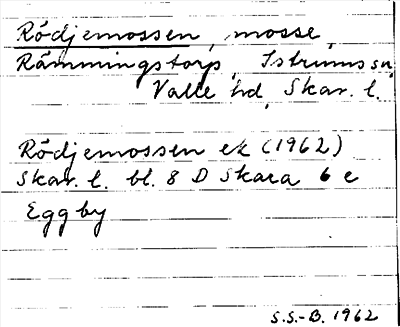 Rödjemossen, mosse,
Rämmingstorp, Istrums sn,
Valle hd, Skar. l.
Rödjemossen ek (1962)
Skar. l. bl. 8 D Skara 6 e
Eggby
S.S.-B. 1962